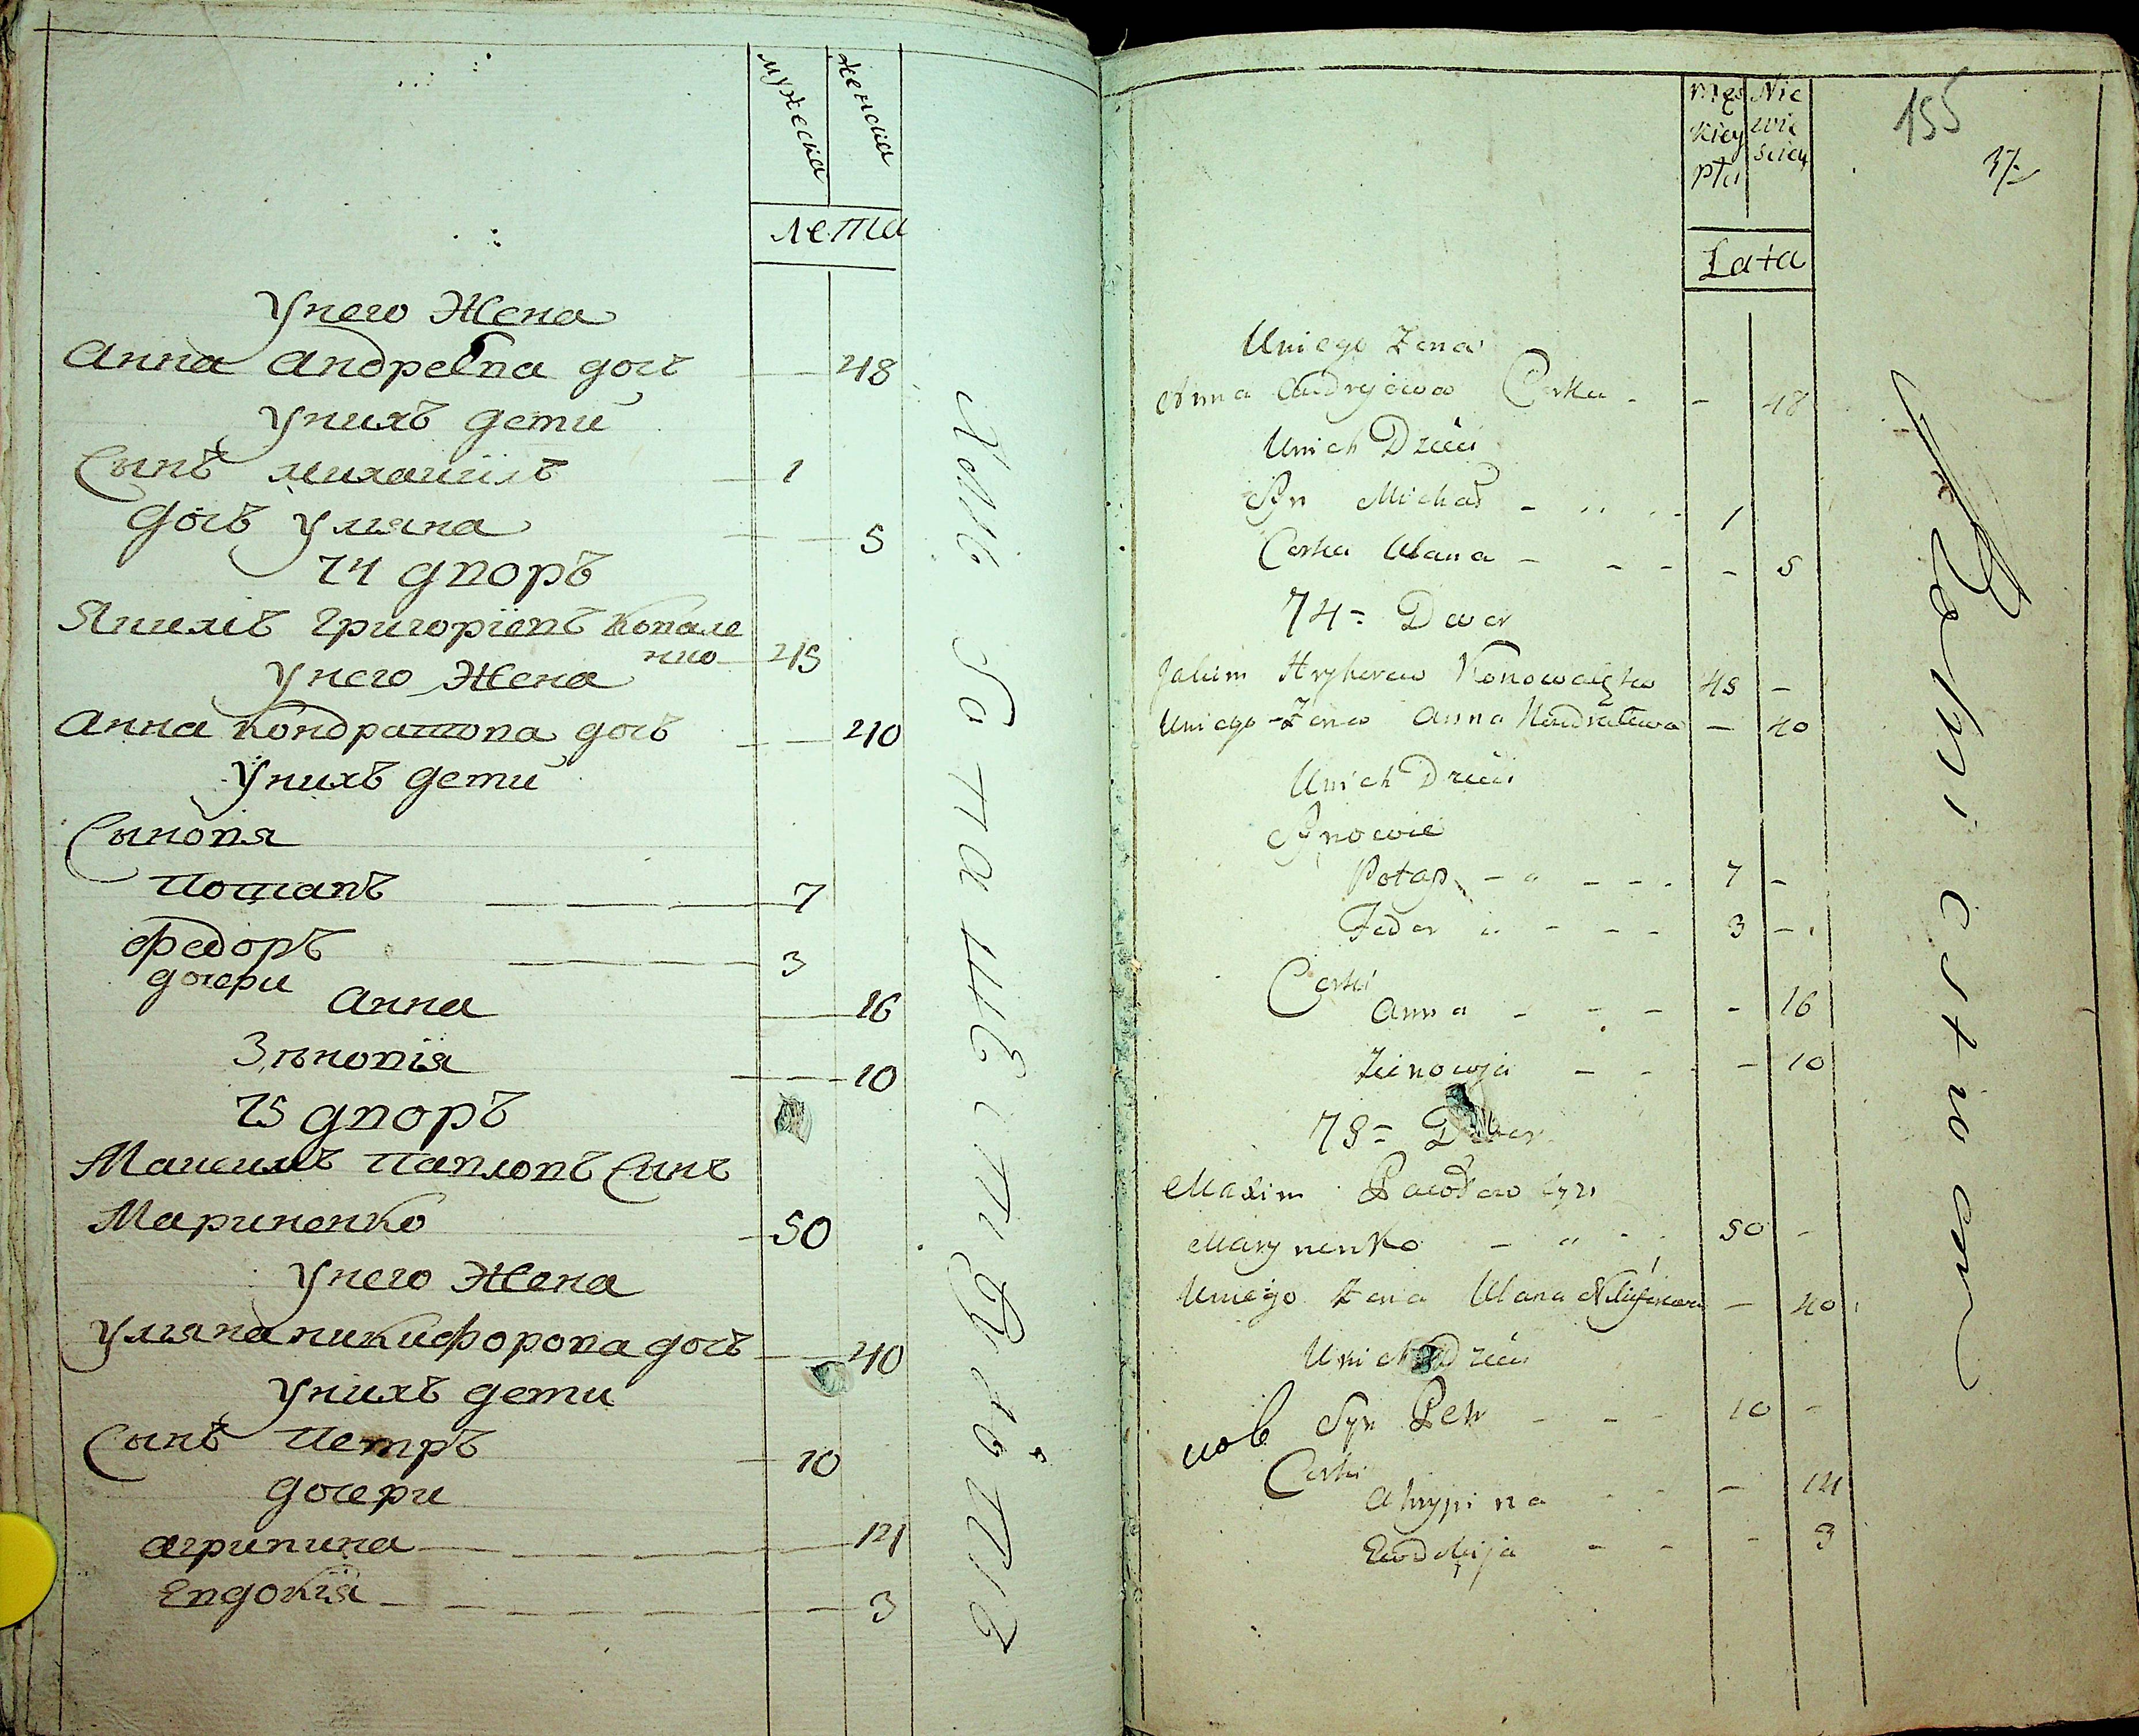 мужеска
женска
лета
Унего Жена
Анна Андреева дочь 48
Унихъ дети
Сынъ михаилъ 1
дочь Уляна 5
74 дворъ
Якимъ Григоріевъ Ковале
нко 45
Унего Жена
Анна Кондратова дочь 40
Унихъ дети
Сыновя
Потапъ 7
Федоръ 3
дочери
Анна 16
Зѣновія 10
75 дворъ
Максимъ Павловъ Сынъ
Мариненко 50
Унего Жена
Уляна никифорова дочь 40
Унихъ дети
Сынъ Петръ 10
дочери
агрипина 14
Евдокія 3
męs Nie
kiey wie
płci sciey
Lata
155
37
Uniego Żena
Anna Andryiowa Corka 48
Unich Dzieci
Syn Michał 1
Corka Ulana 5
74 = Dwor
Jakim Hryhorew Konowalenko 45
Uniego Żena Anna Kondratowa 40
Unich Dzieci
Synowie
Potap 7
Fedor 3
Corki
Anna 16
Zienowja 10
75 = Dwor
Maxim Pawłow syn
Marynenko 50
Uniego Żena Ulana Nikiforowa 40
Unich Dzieci
нов Syn Petr 10
Corki
Ahrypina 14
Ewdokija 3